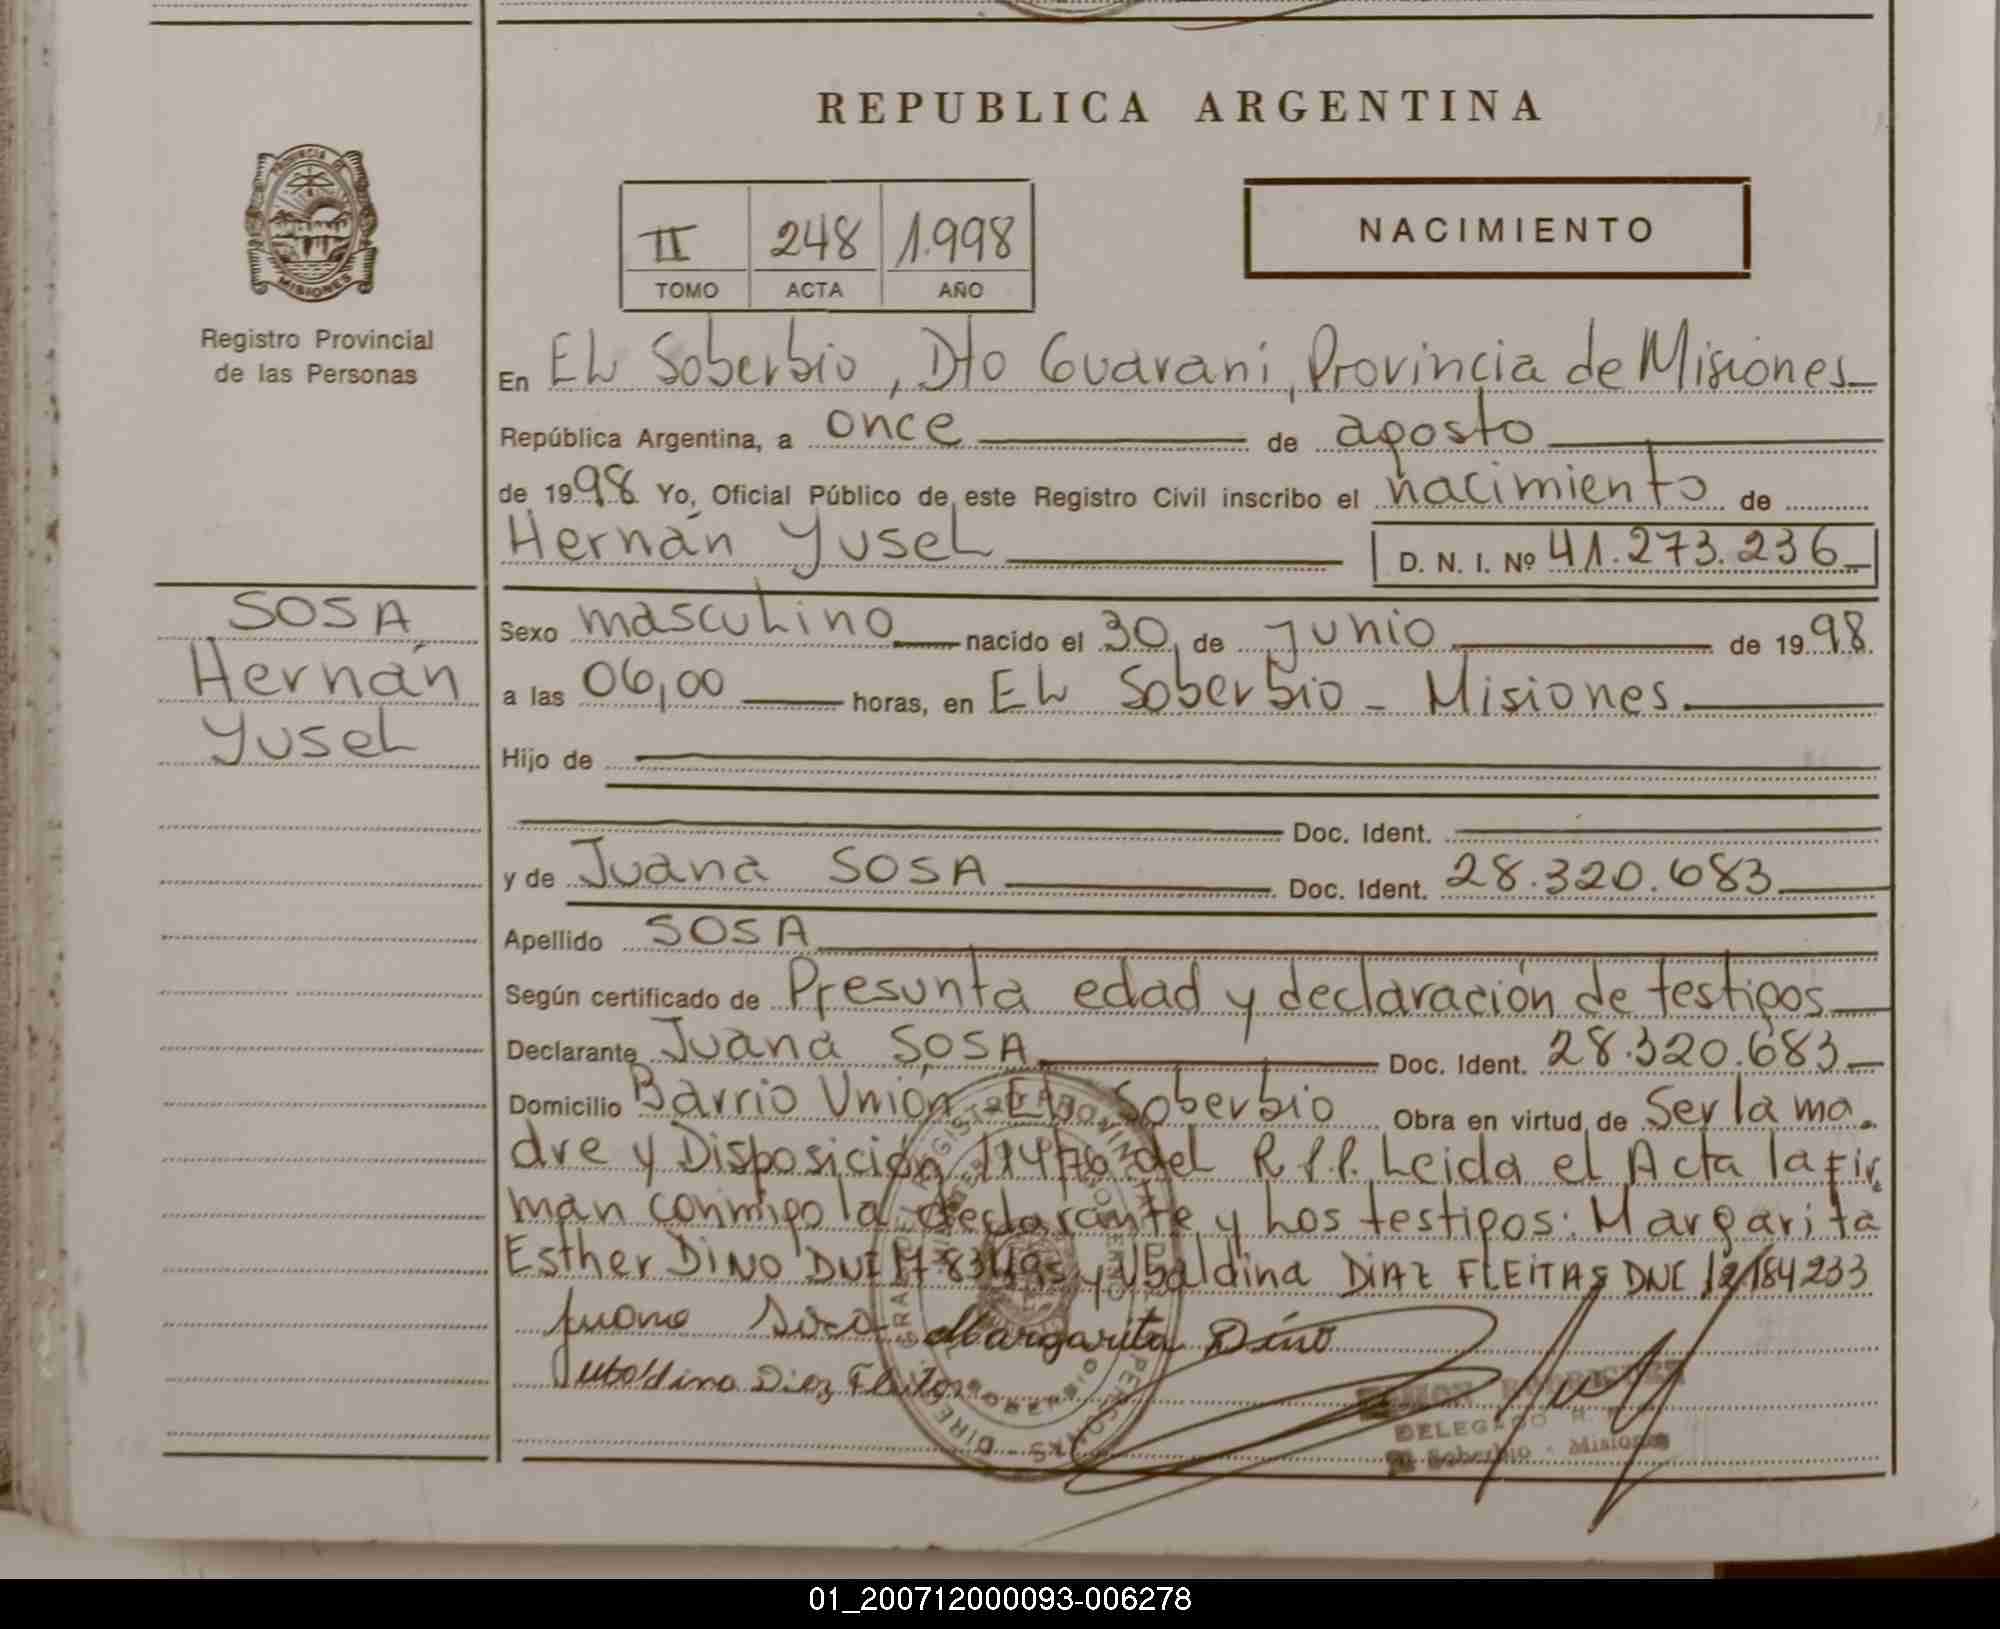 REPUBLICA ARGENTINA
PROVINCIA DE
MISIONES
Registro Provincial
de las Personas
NACIMIENTO
II 248 1.998
TOMO ACTA AÑO
En EL Soberbio, Dto Guaraní, Provincia de Misiones
República Argentina, a once de agosto
de 1998 Yo, Oficial Público de este Registro Civil inscribo el nacimiento de
Hernán Yusel D. N. I. Nº 41.273.236
SOSA
Hernán
Yusel
Sexo masculino nacido el 30 de junio de 1998.
a las 06,00 horas, en EL Soberbio - Misiones
Hijo de
Doc. Ident.
y de Juana SOSA Doc. Ident. 28.320.683
Apellido SOSA
Según certificado de Presunta edad y declaración de testigos
Declarante Juana SOSA Doc. Ident. 28.320.683
Domicilio Barrio Unión - EL Soberbio Obra en virtud de Ser la ma-
dre y Disposición del R.P.P. Leida el Acta la fir-
man conmigo la declarante y los testigos: Margarita
Esther DINO DNI y Ubaldina DIAZ FLEITAS DNI 12184233
Juana Sosa Margarita Dino
Ubaldina Diaz Fleitas
RODRIGUEZ
DELEGADO R.
El Soberbio - Misiones
01_200712000093-006278